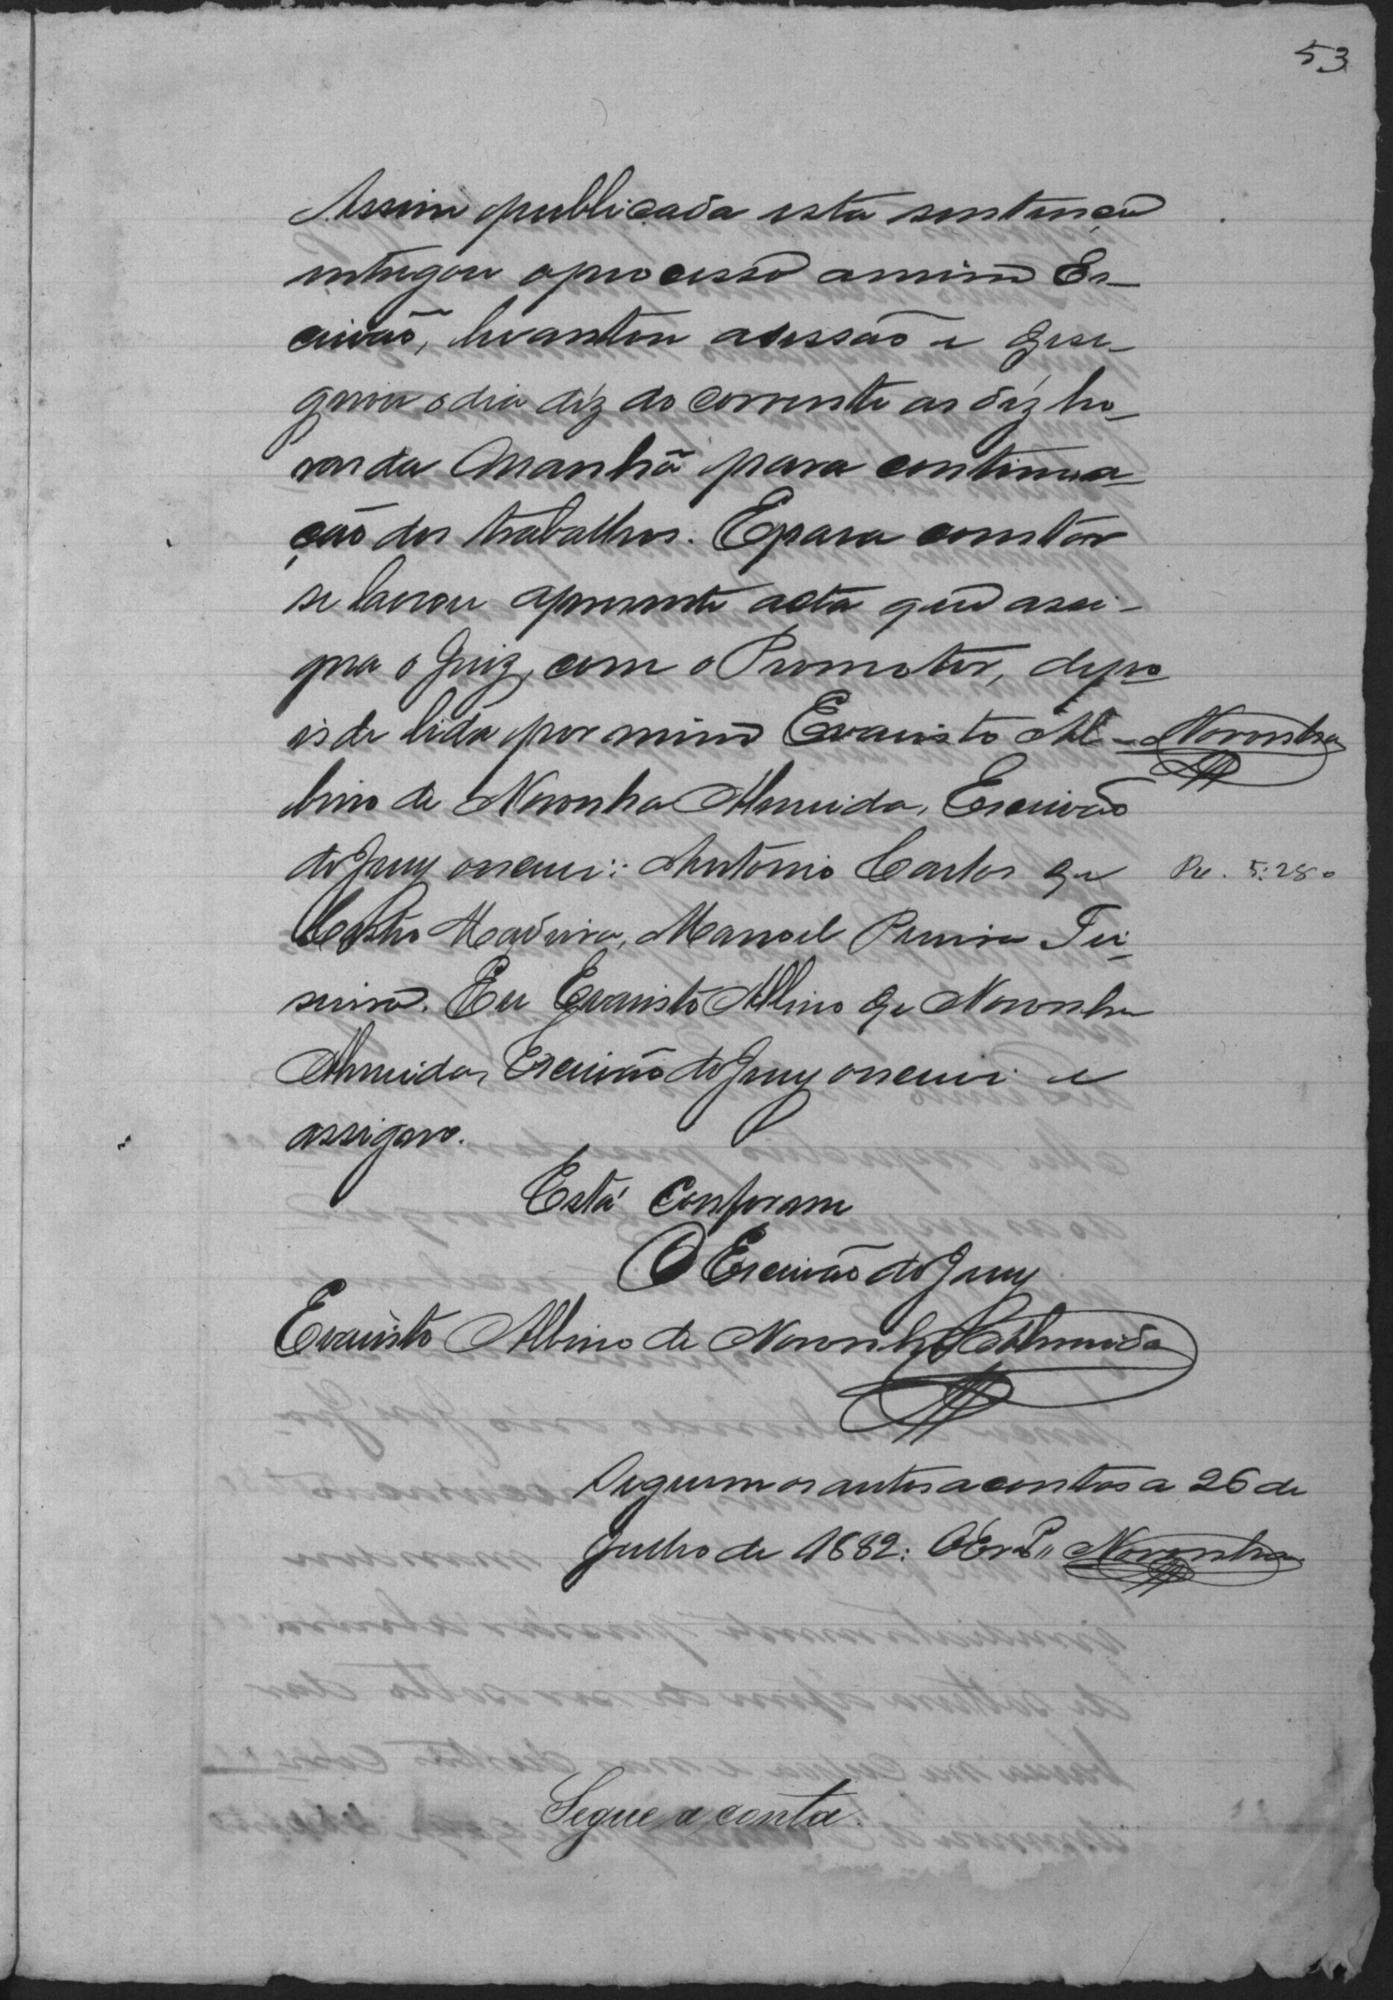 53
Assim publicada esta sentença
entregou o processo a mim Es-
crivão, levantou a sessão e dese-
gnou o dia déz do corrente as déz ho-
ras da Manhã para continua-
ção dos trabalhos. E para constar
se lavrou a presente acta que assi-
gna o Juiz, com o Promotor, depo-
is de lida por mim Evaristo Al-
Noronha
bino de Noronha Almeida, Escrivão
do Jury o escrevi: Antonio Carlos de
5:280
Castro Madeira, Manoel Pereira Tei-
xeira. Eu Evaristo Albino de Noronha
Almeida, Escrivão do Jury o escrevi e
assigno.
Está conforme
O Escrivão do Jury
Evaristo Albino de Noronha Almeida
Seguem os autos a contos a 26 de
Julho de 1882: Noronha
Segue a conta.